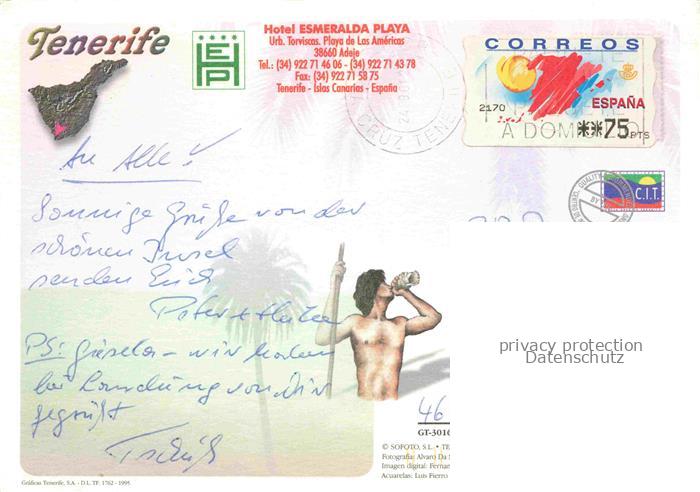 Tenerife
HEP
Hotel ESMERALDA PLAYA
Urb. Torviscas. Playa de Las Américas
38660 Adeje
Tel.: (34) 922 71 46 06 - (34) 922 71 43 78
Fax: (34) 922 71 58 75
Tenerife - Islas Canarias - España
CORREOS
2170
ESPAÑA
A DOMICILIO
**75 PTS
CRUZ TENE
C.I.T.
QUALITY
BY
An Alle!
Sonnige Grüße von der
schönen Insel
senden Euch
Peter +
PS: Gisela - wir haben
bei Landung von Dir
gegrüßt
Tschüß
46
privacy protection
Datenschutz
GT-3016
© SOFOTO, S.L. - TE
Fotografía: Alvaro Da
Imagen digital: Fernan
Acuarelas: Luis Fierro
Gráficas Tenerife, S.A. - D.L. TF. 1762 - 1995